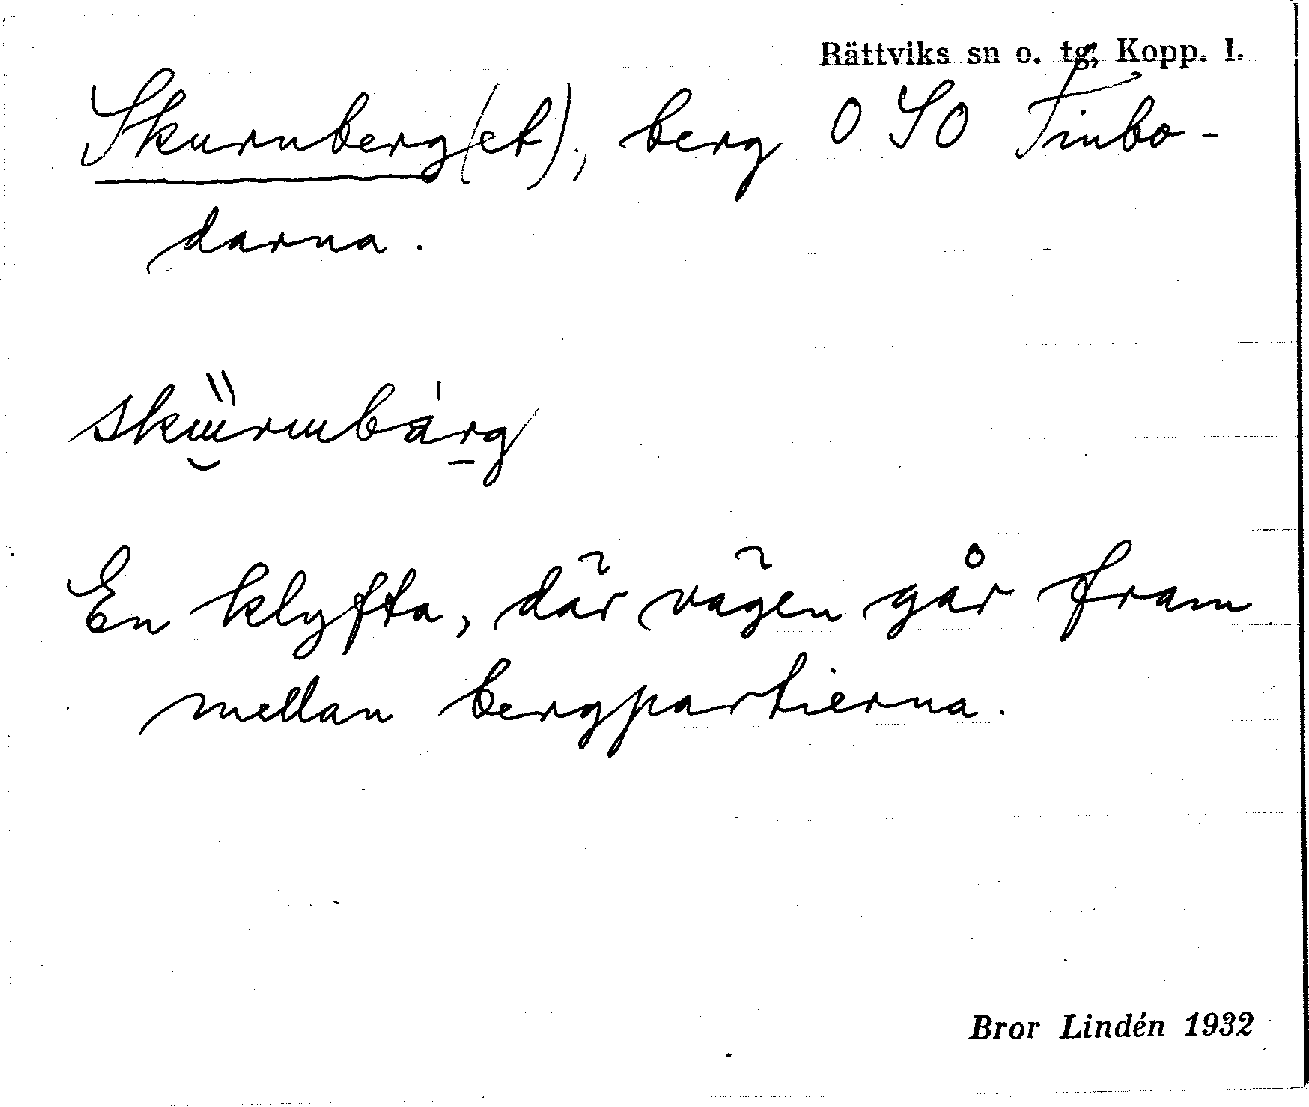 Rättviks sn o. tg, Kopp. l.
Skurnberg(et), berg O SO Finbo-
darna.
skurmbarg
En klyfta, där vägen går fram
mellan bergpartierna.
Bror Lindén 1932